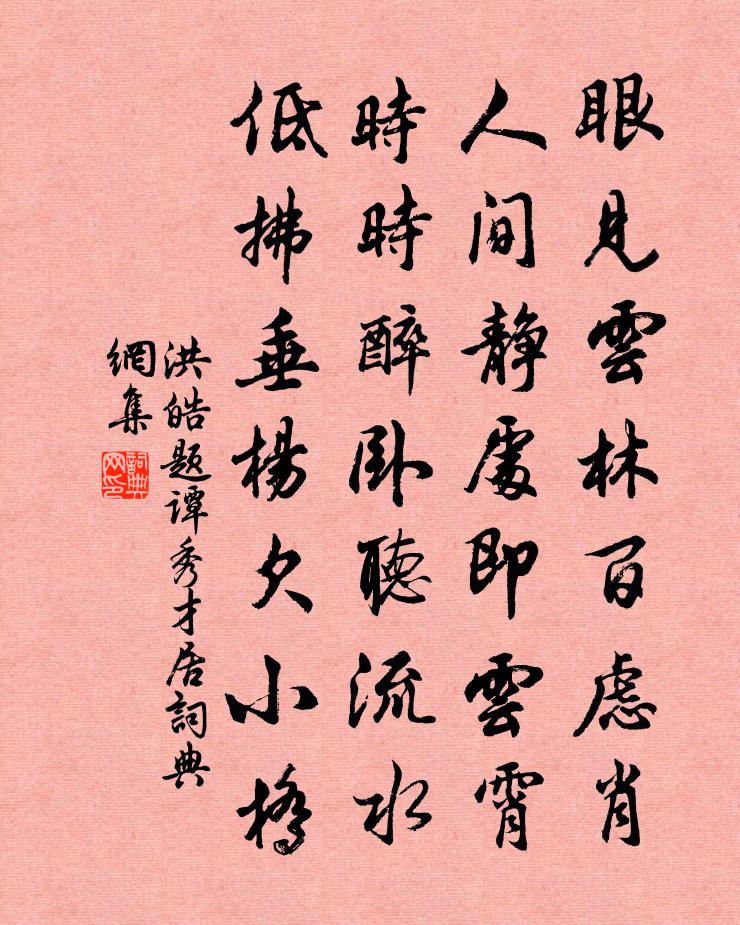 眼見雲林百慮肖
人间静處即雲霄
時時醉卧聽流水
低拂垂楊欠小橋
洪皓题谭秀才居詞典
網集
詞典
网印